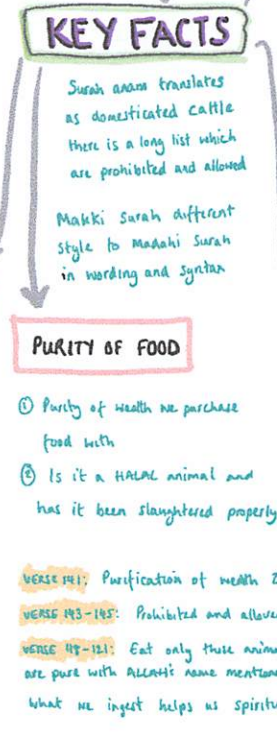 KEY FACTS
Surah anam translates
as domesticated cattle
there is a long list which
are prohibited and allowed
Makki surah different
style to Madani surah
in wording and syntax
PURITY OF FOOD
① Purity of wealth we purchase
food with
② Is it a HALAL animal and
has it been slaughtered properly
VERSE 141: Purification of wealth
VERSE 143-145: Prohibited and
VERSE 118-121: Eat only those
are pure with ALLAH's name
what we ingest helps us